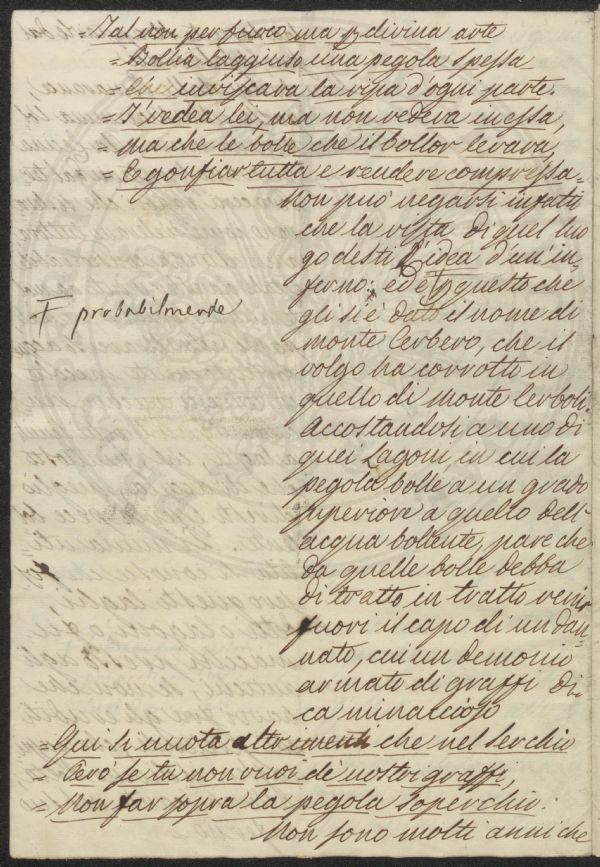 = Tal non per fuoco ma p divina arte
= Bollia laggiuso una pegola spessa
= Che inviscava la ripa d'ogni parte.
= I' vedea lei, ma non vedeva in essa,
= ma che le bolle che il bollor levava,
= E gonfiar tutta e riedere compressa=
Non può negarsi infatti
che la vista di quel luo
go desti l'idea d'un' in,
ferno: ed è p questo che
F probabilmente
gli si è dato il nome di
monte Cerbero, che il
volgo ha corrotto in
quello di monte Cerboli.
Accostandosi a uno di
quei Lagoni in cui la
pegola bolle a un grado
superiore a quello dell'
acqua bollente, pare che
da quelle bolle debba
di tratto in tratto venir
fuori il capo di un dan=
nato, cui un demonio
armato di graffi di=
ca minaccioso
= Qui si nuota altrimenti che nel Serchio
= Però se tu non vuoi de' nostri graffi,
= Non far sopra la pegola soperchio.
Non sono molti anni che